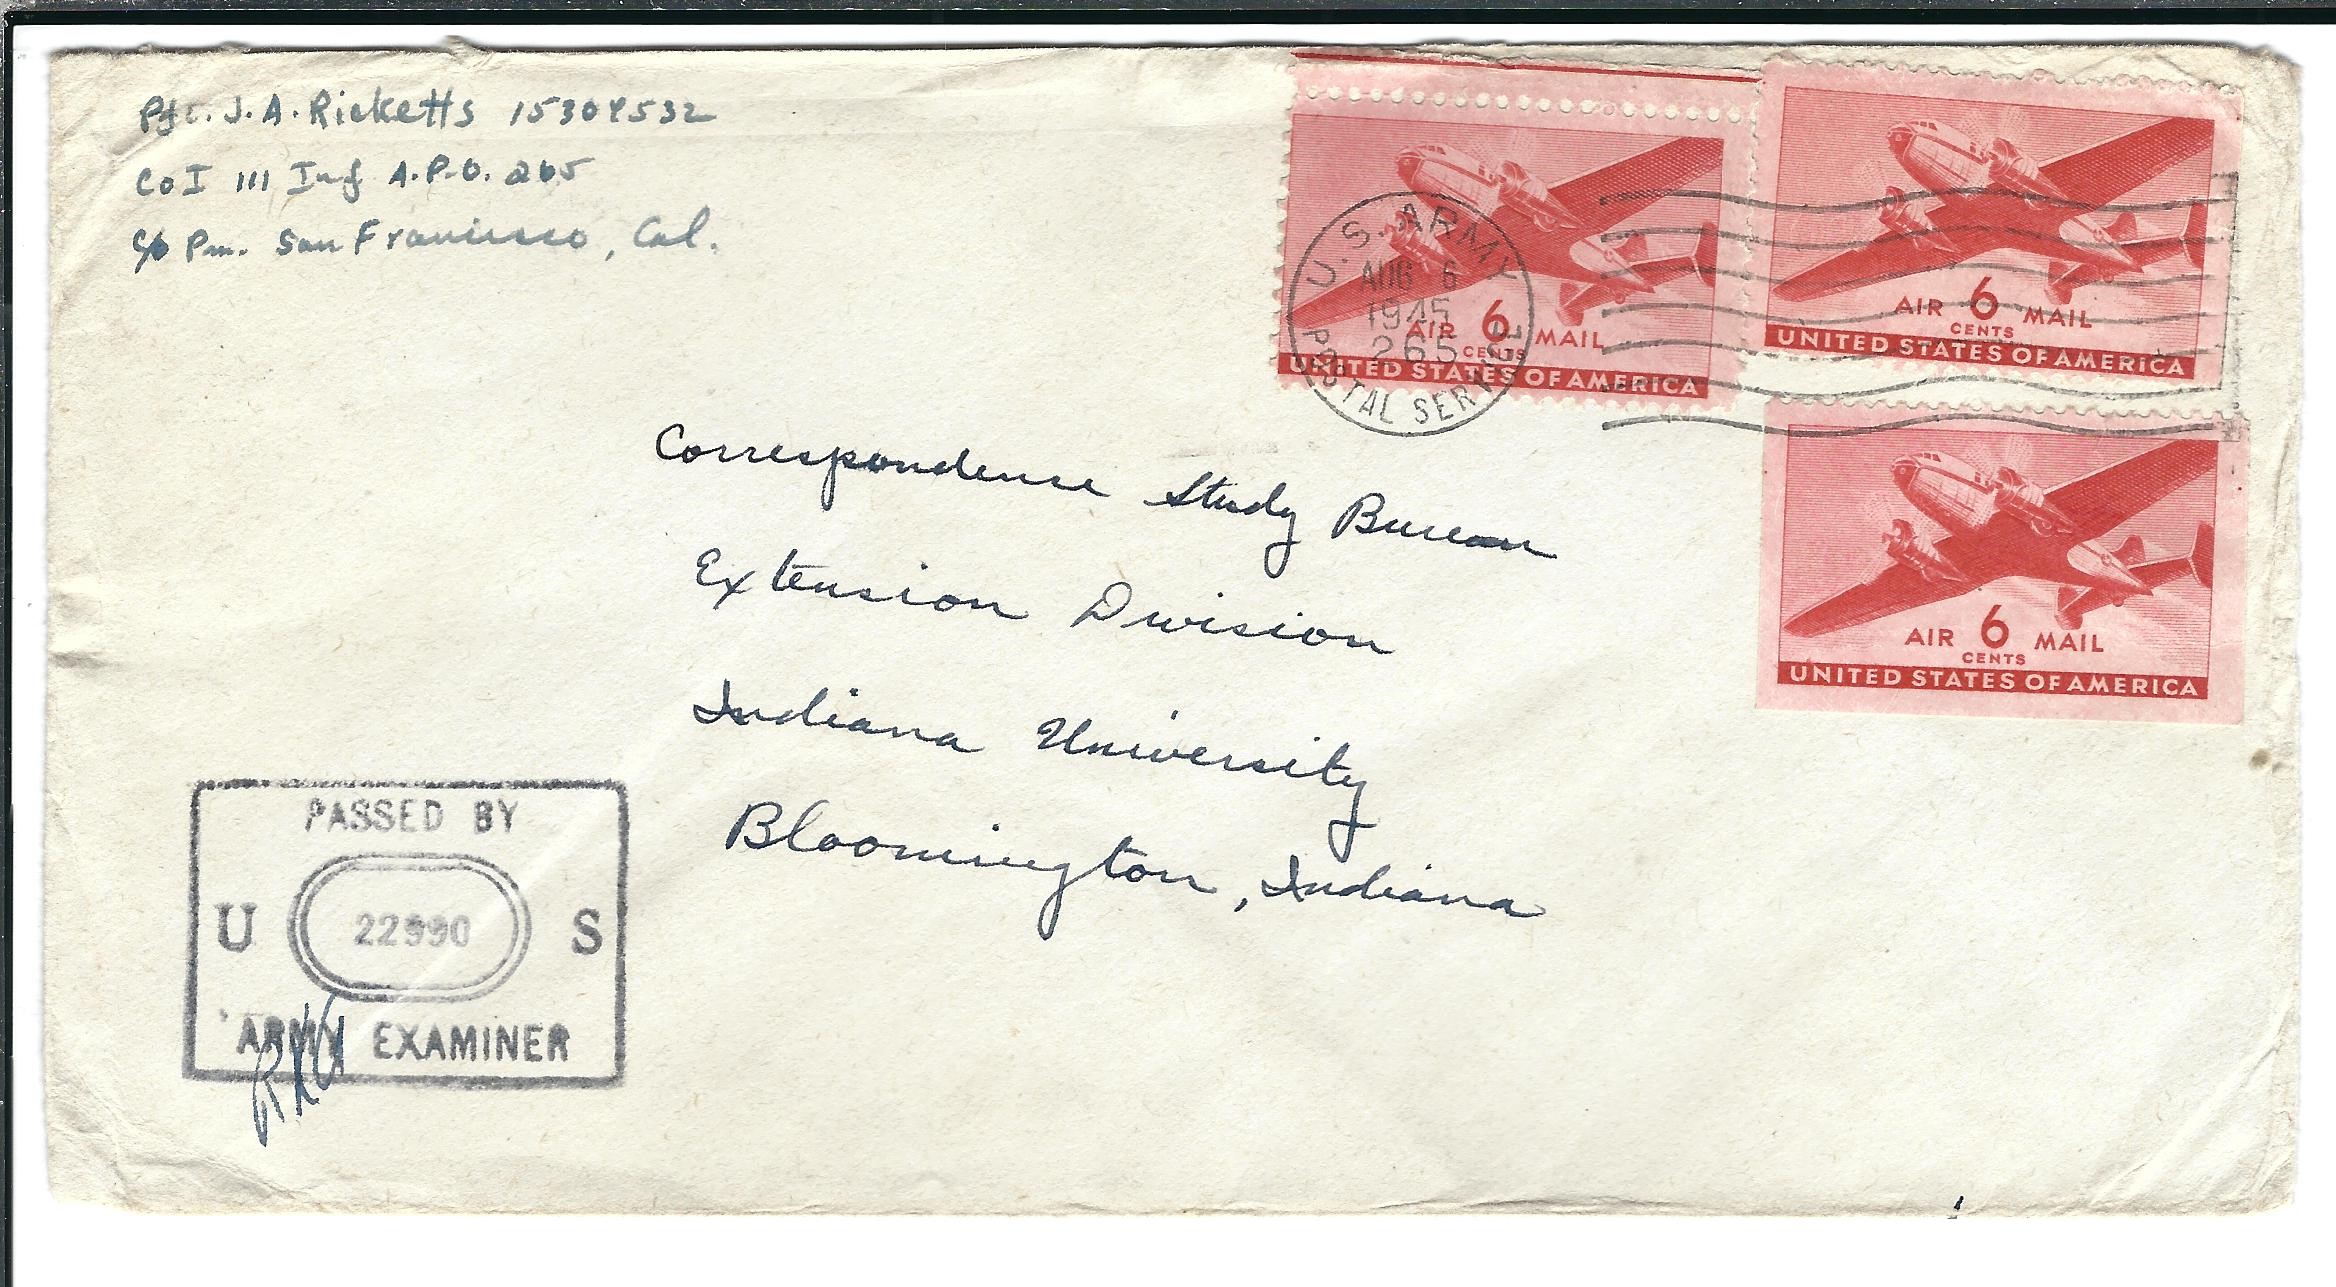 Pfc. J. A. Ricketts 15304532
Co I 111 Inf A.P.O. 265
c/o Pm. San Francisco, Cal.
U.S. ARMY
AUG 6
1945
265
POSTAL SERVICE
AIR 6 MAIL
CENTS
UNITED STATES OF AMERICA
AIR 6 MAIL
CENTS
UNITED STATES OF AMERICA
AIR 6 MAIL
CENTS
UNITED STATES OF AMERICA
Correspondence Study Bureau
Extension Division
Indiana University
Bloomington, Indiana
PASSED BY
U 22990 S
ARMY EXAMINER